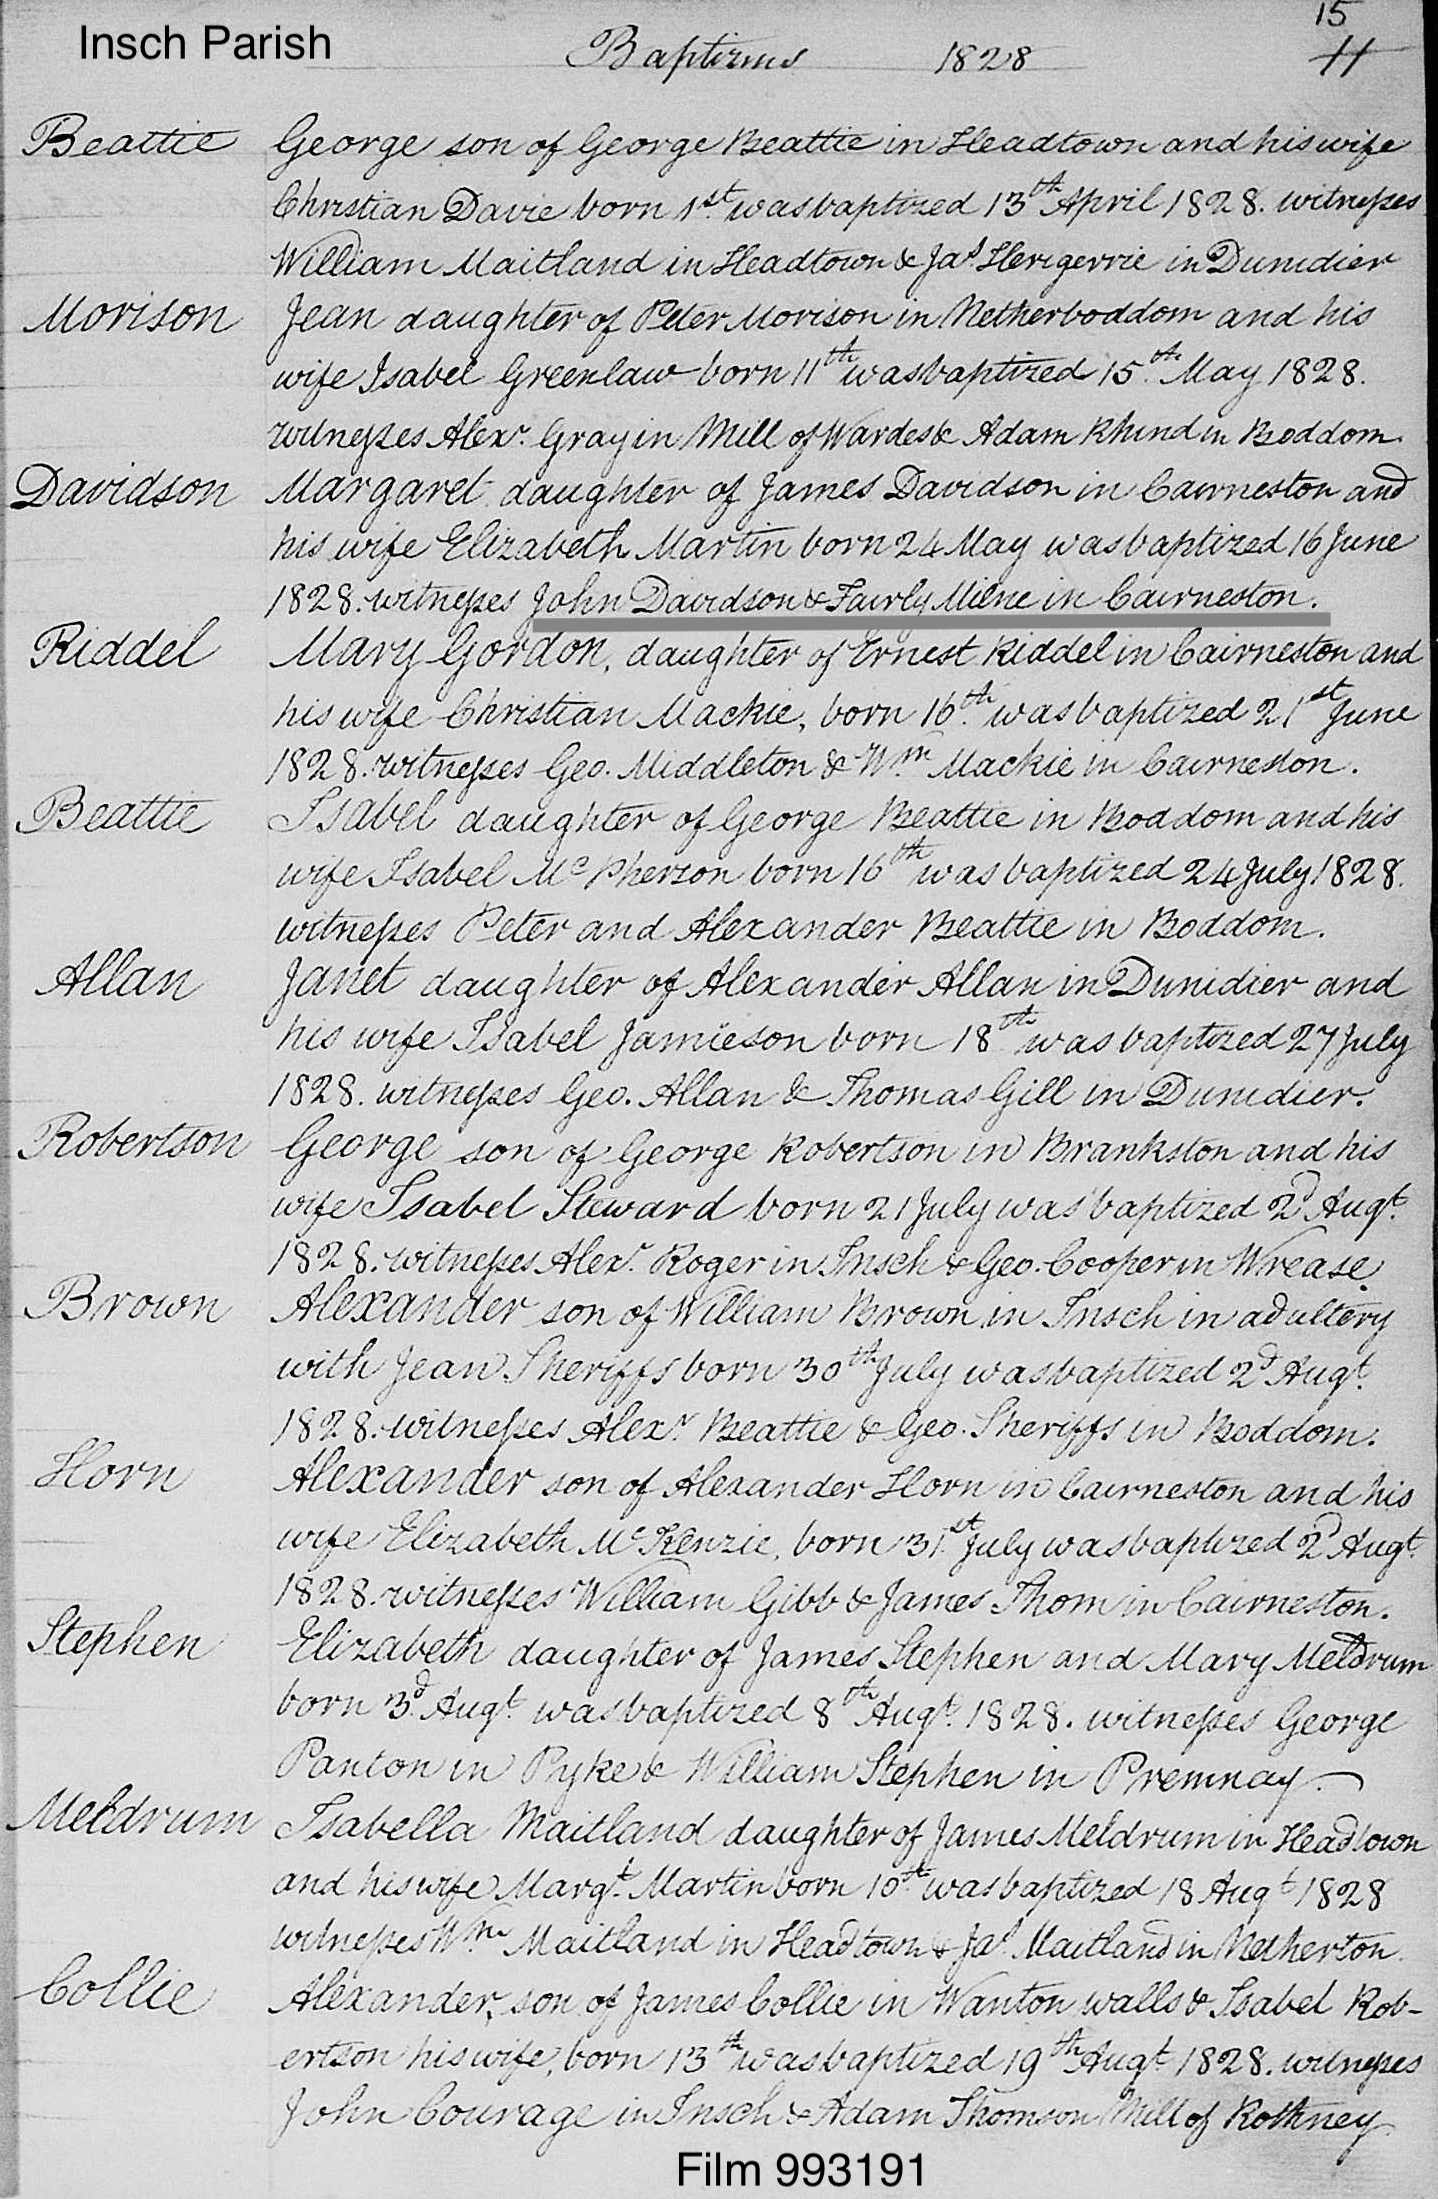 Insch Parish
15
Baptizms 1828 11
Beattie George son of George Beattie in Headtown and his wife
Christian Davie born 1st. was baptized 13th April 1828. witnesses
William Maitland in Headtown & Jas. in Dunidier
Morison Jean daughter of Peter Morison in Netherboddom and his
wife Isabel Greenlaw born 11th was baptized 15th. May 1828.
witnesses Alexr. Gray in Mill of Wardes & Adam Rhind in Boddom.
Davidson Margaret daughter of James Davidson in Cairneston and
his wife Elizabeth Martin born 24 May was baptized 16 June
1828. witnesses John Davidson & Fairly Milne in Cairneston.
Riddel Mary Gordon, daughter of Ernest Riddel in Cairneston and
his wife Christian Mackie, born 16th. was baptized 21st June
1828. witnesses Geo. Middleton & Wm. Mackie in Cairneston.
Beattie Isabel daughter of George Beattie in Boddom and his
wife Isabel McPherson born 16th was baptized 24 July 1828.
witnesses Peter and Alexander Beattie in Boddom.
Allan Janet daughter of Alexander Allan in Dunidier and
his wife Isabel Jamieson born 18th was baptized 27 July
1828. witnesses Geo. Allan & Thomas Gill in Dunidier.
Robertson George son of George Robertson in Brankston and his
wife Isabel Steward born 21 July was baptized 2d Augt.
1828. witnesses Alexr. Roger in Insch & Geo. Cooper in Wrease
Brown Alexander son of William Brown in Insch in adultery
with Jean Sheriffs born 30th July was baptized 2d Augt.
1828. witnesses Alexr. Beattie & Geo. Sheriffs in Boddom.
Horn Alexander son of Alexander Horn in Cairneston and his
wife Elizabeth McKenzie, born 31st. July was baptized 2d Augt.
1828. witnesses William Gibb & James Thom in Cairneston.
Stephen Elizabeth daughter of James Stephen and Mary Meldrum
born 3d. Augt. was baptized 8th Augt. 1828. witnesses George
Panton in Pyke & William Stephen in Premnay.
Meldrum Isabella Maitland daughter of James Meldrum in Headtown
and his wife Margt. Martin born 10th. was baptized 18 Augt 1828
witnesses Wm. Maitland in Headtown & Jas. Maitland in Netherton.
Collie Alexander, son of James Collie in Wanton walls & Isabel Rob-
ertson his wife, born 13th was baptized 19th Augt 1828. witnesses
John Courage in Insch & Adam Thomson Mill of Rothney
Film 993191